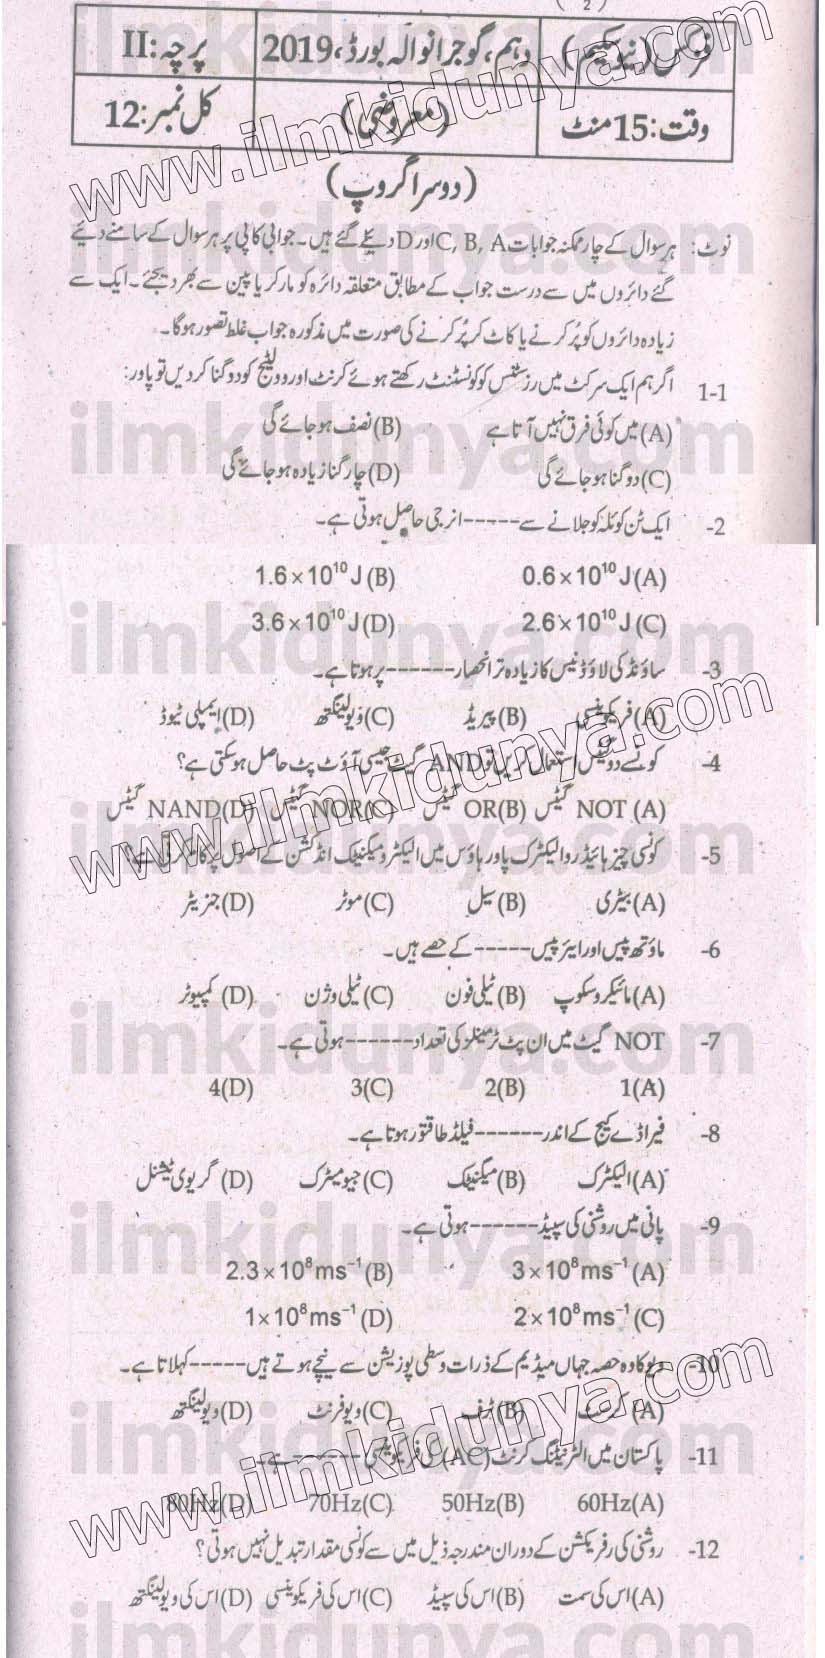 (2)
فزکس (نیو سکیم) دہم، گوجرانوالہ بورڈ، 2019 پرچہ: II
وقت: 15 منٹ (معروضی) کل نمبر: 12
(دوسرا گروپ)
نوٹ: ہر سوال کے چار ممکنہ جوابات C, B, A اور D دیئے گئے ہیں۔ جوابی کاپی پر ہر سوال کے سامنے دیئے
گئے دائروں میں سے درست جواب کے مطابق متعلقہ دائرہ کو مارکر یا پین سے بھر دیجئے۔ ایک سے
زیادہ دائروں کو پُر کرنے یا کاٹ کر پُر کرنے کی صورت میں مذکورہ جواب غلط تصور ہوگا۔
1-1 اگر ہم ایک سرکٹ میں رزسٹنس کو کونسٹنٹ رکھتے ہوئے کرنٹ اور وولٹیج کو دوگنا کر دیں تو پاور:
(A) میں کوئی فرق نہیں آتا ہے (B) نصف ہو جائے گی
(C) دوگنا ہو جائے گی (D) چار گنا زیادہ ہو جائے گی
2- ایک ٹن کوئلہ کو جلانے سے ----- انرجی حاصل ہوتی ہے۔
(A) 0.6 × 10¹⁰ J (B) 1.6 × 10¹⁰ J
(C) 2.6 × 10¹⁰ J (D) 3.6 × 10¹⁰ J
3- ساؤنڈ کی لاؤڈنیس کا زیادہ تر انحصار ------ پر ہوتا ہے۔
(A) فریکوئنسی (B) پیریڈ (C) ویولینگتھ (D) ایمپلی ٹیوڈ
4- کونسے دو گیٹس استعمال کریں تو AND گیٹ جیسی آؤٹ پٹ حاصل ہو سکتی ہے؟
(A) NOT گیٹس (B) OR گیٹس (C) NOR گیٹس (D) NAND گیٹس
5- کونسی چیز ہائیڈرو الیکٹرک پاور ہاؤس میں الیکٹرو میگنیٹک انڈکشن کے اصول پر کام کرتی ہے؟
(A) بیٹری (B) سیل (C) موٹر (D) جنریٹر
6- ماؤتھ پیس اور ایئر پیس ----- کے حصے ہیں۔
(A) مائیکروسکوپ (B) ٹیلی فون (C) ٹیلی وژن (D) کمپیوٹر
7- NOT گیٹ میں ان پٹ ٹرمینلز کی تعداد ------ ہوتی ہے۔
(A) 1 (B) 2 (C) 3 (D) 4
8- فیراڈے کیج کے اندر ------ فیلڈ طاقتور ہوتا ہے۔
(A) الیکٹرک (B) میگنیٹک (C) جیومیٹرک (D) گریوی ٹیشنل
9- پانی میں روشنی کی سپیڈ ------ ہوتی ہے۔
(A) 3 × 10⁸ ms⁻¹ (B) 2.3 × 10⁸ ms⁻¹
(C) 2 × 10⁸ ms⁻¹ (D) 1 × 10⁸ ms⁻¹
10- ویو کا وہ حصہ جہاں میڈیم کے ذرات وسطی پوزیشن سے نیچے ہوتے ہیں ----- کہلاتا ہے۔
(A) کرسٹ (B) ٹرف (C) ویو فرنٹ (D) ویولینگتھ
11- پاکستان میں الٹرنیٹنگ کرنٹ (AC) کی فریکوئنسی ------ ہے۔
(A) 60Hz (B) 50Hz (C) 70Hz (D) 80Hz
12- روشنی کی رفریکشن کے دوران مندرجہ ذیل میں سے کونسی مقدار تبدیل نہیں ہوتی؟
(A) اس کی سمت (B) اس کی سپیڈ (C) اس کی فریکوئنسی (D) اس کی ویولینگتھ
www.ilmkidunya.com
ilmkidunya.com
ilmkidunya.com
ilmkidunya.com
www.ilmkidunya.com
ilmkidunya.com
ilmkidunya.com
ilmkidunya.com
www.ilmkidunya.com
ilmkidunya.com
ilmkidunya.com